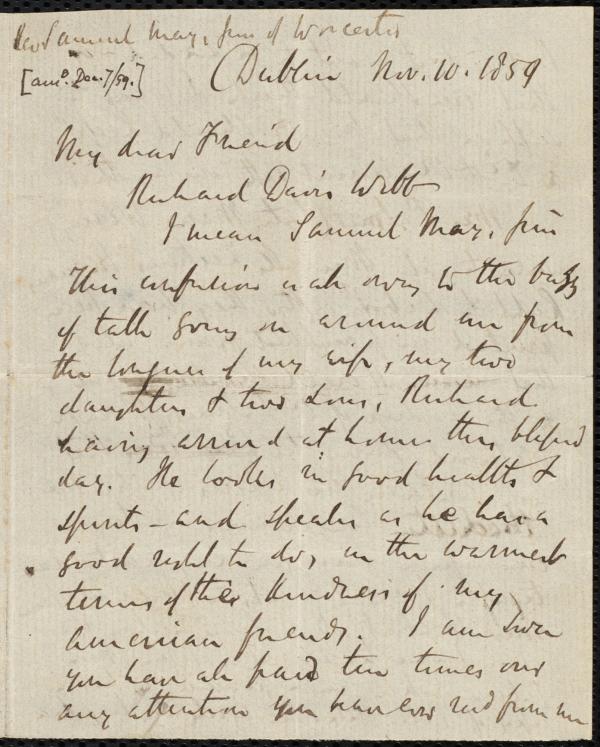 Rev Samuel May, Jun of Worcester
[ansd. Dec. 7/59.]
Dublin Nov. 10. 1859
My dear Friend
Richard Davis Webb
I mean Samuel May, Jun
This confusion is all owing to the buzz
of talk going on around me from
the tongues of my wife, my two
daughters & two sons, Richard
having arrived at home this blessed
day. He looks in good health &
spirits – and speaks as he has a
good right to do, in the warmest
terms of the kindness of my
American friends. I am sure
you have all paid ten times over
any attention you have ever recd from me